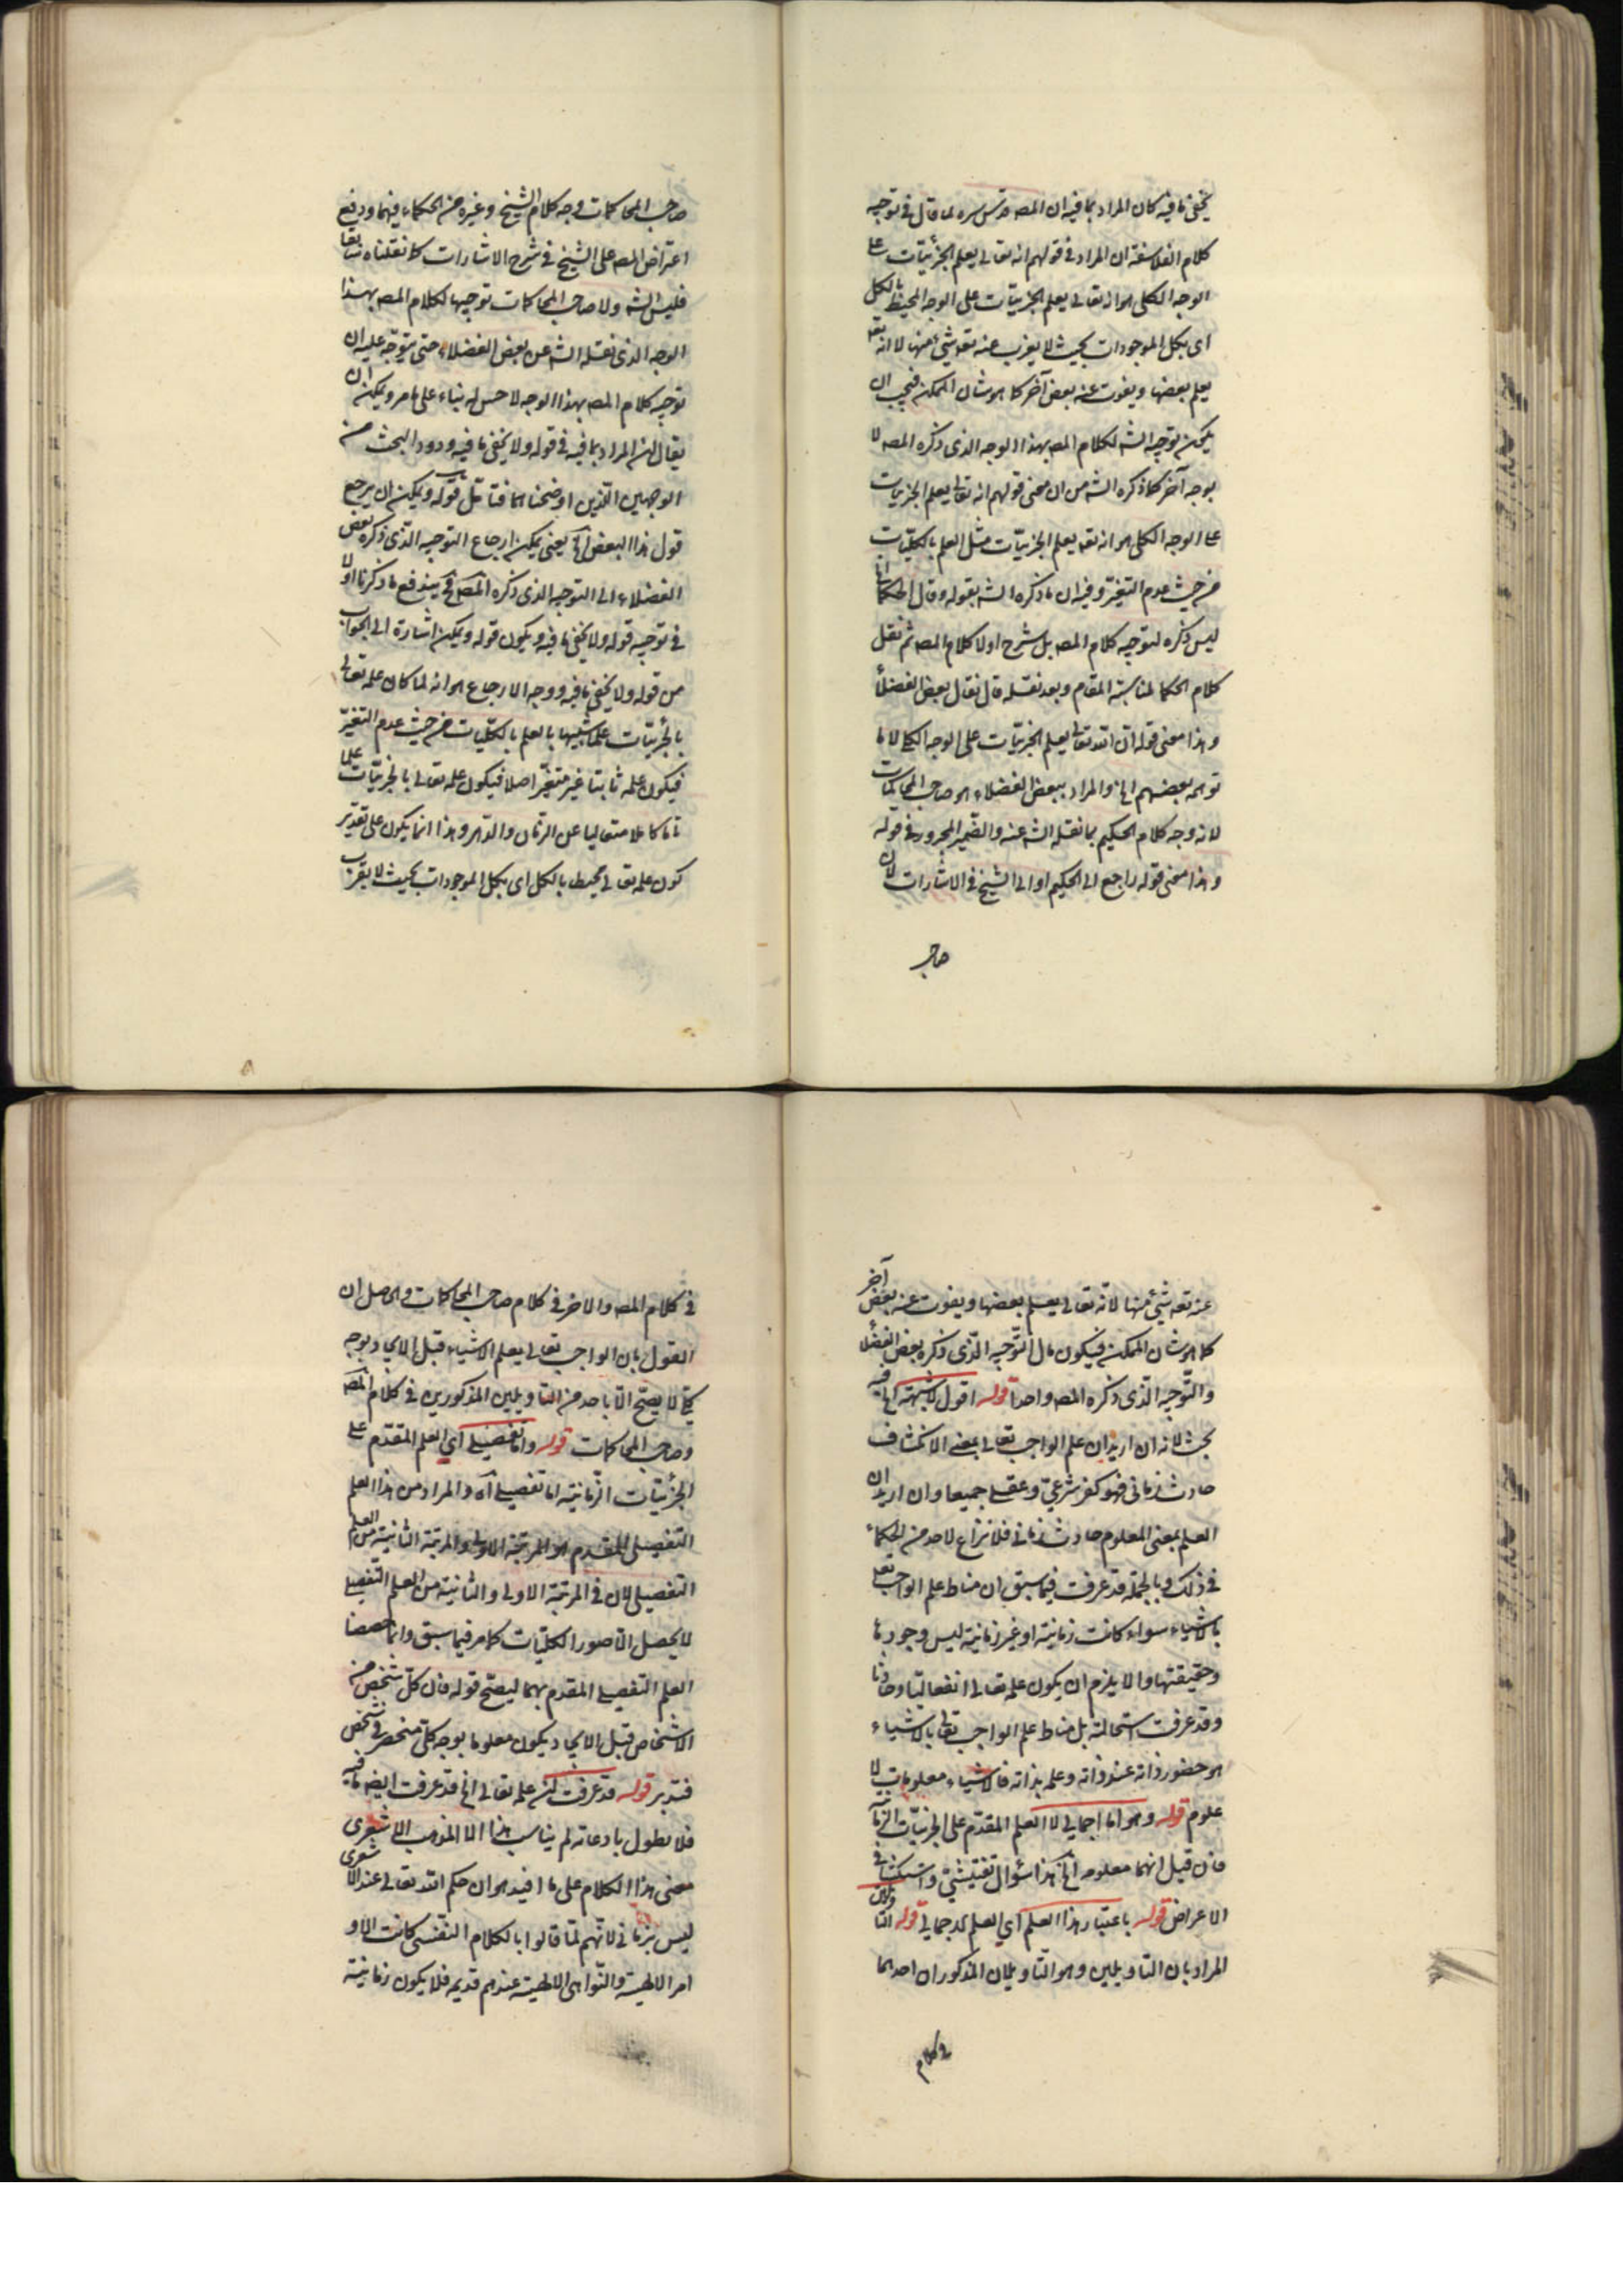 يخفى ما فيه كان المراد بما فيه ان المصه قدس سره لما قال في توجيه
كلام الفلاسفة ان المراد في قولهم انه تعالى يعلم الجزئيات على
الوجه الكلى هو انه تعالى يعلم الجزئيات على الوجه المحيط بالكل
اى بكل الموجودات بحيث لا يعزب عنه تعه شئ منها لا انه تعه
يعلم بعضها ويفوت عنه بعض آخر كما هو شان الممكن فيجب ان
يمكن توجيه الشه لكلام المصه بهذا الوجه الذى ذكره المصه لا
بوجه آخر كما ذكره الشه من ان معنى قولهم انه تعالى يعلم الجزئيات
على الوجه الكلى هو انه تعه يعلم الجزئيات مثل العلم بالكليات
من حيث عدم التغير وفيه ان ما ذكره الشه بقوله وقال الحكما
ليس ذكره لتوجيه كلام المصه بل شرح اولا كلام المصه ثم نقل
كلام الحكما لمناسبة المقام وبعد نقله قال فقال بعض الفضلأ
وهذا معنى قوله ان الله تعالى يعلم الجزئيات على الوجه الكلى لا ما
توهمه بعضهم الخ والمراد ببعض الفضلاء هو صاحب المحاكمات
لانه وجه كلام الحكيم بما نقله الشه عنه والضمير المجرور في قوله
وهذا معنى قوله راجع الى الحكيم او الى الشيخ في الاشارات لان
صاحب
صاحب المحاكمات وجه كلام الشيخ وغيره من الحكماء فيهما ودفع
اعتراض المصه على الشيخ في شرح الاشارات كما نقلناه سابقا
فليس الشه ولا صاحب المحاكمات توجيها لكلام المصه بهذا
الوجه الذى نقله الشه عن بعض الفضلاء حتى يتوجه عليه ان
توجيه كلام المصه بهذا الوجه لا حسن له بناء على ما مر ويمكن ان
يقال ان المراد بما فيه في قوله ولا يخفى ما فيه ورود البحث من
الوجهين الذين اوضحناهما فتامل قوله ويمكن ان يرجع
قول هذا البعض الخ يعنى يمكن ارجاع التوجيه الذى ذكره بعض
الفضلاء الى التوجيه الذى ذكره المصه فح يندفع ما ذكرنا اولا
في توجيه قوله ولا يخفى ما فيه ويكون قوله ويمكن اشارة الى الجواب
من قوله ولا يخفى ما فيه ووجه الارجاع هو انه لما كان علمه تعالى
بالجزئيات علما شبيها بالعلم بالكليات من حيث عدم التغير
فيكون علمه ثابتا غير متغير اصلا فيكون علمه تعالى بالجزئيات علما
تاما كاملا متعاليا عن الزمان والدهر وهذا انما يكون على تقدير
كون علمه تعالى محيطا بالكل اى بكل الموجودات بحيث لا يعزب
عنه تعه شئ منها لا انه تعالى يعلم بعضها ويفوت عنه بعض آخر
كما هو شان الممكن فيكون مال التوجيه الذى ذكره بعض الفضلأ
والتوجيه الذى ذكره المصه واحدا قوله اقول لا شبهة الخ فيه
بحث لانه ان اريد ان علم الواجب تعالى بمعنى الانكشاف
حادث زمانى فهو كفر شرعي وعقلى جميعا وان اريد ان
العلم بمعنى المعلوم حادث زمانى فلا نزاع لاحد من الحكماء
في ذلك وبالجملة قد عرفت فيما سبق ان مناط علم الواجب تعه
بالاشياء سواء كانت زمانية او غير زمانية ليس وجودها
وحقيقتها والا يلزم ان يكون علمه تعالى انفعاليا وحادثا
وقد عرفت استحالته بل مناط علم الواجب تعالى بالاشياء
هو حضور ذاته عند ذاته وعلمه بذاته فالاشياء معلومات لا
علوم قوله وهو اما اجمالى لا العلم المقدم على الجزئيات الزما
فان قيل انهما معلوم الخ هذا سؤال تفتيشى
الاعراض قوله باعتبار هذا العلم اي العلم الاجمالى قوله التاويلان
المراد بان التاويلين وهو التاويلان المذكوران احدهما
في كلام
في كلام المصه والاخر في كلام صاحب المحاكمات والحاصل ان
القول بان الواجب تعالى يعلم الاشياء قبل الايجاد بوجه
كلى لا يصح الا باحد من التاويلين المذكورين في كلام المصه
وصاحب المحاكمات قوله واما تفصيلى اي العلم المقدم على
الجزئيات الزمانية اما تفصيلى اه والمراد من هذا العلم
التفصيلى المقدم هو المرتبة الاولى والمرتبة الثانية من العلم
التفصيلى لان في المرتبة الاولى والثانية من العلم التفصيلى
لا يحصل الا صور الكليات كما مر فيما سبق وانما خصصنا
العلم التفصيلى المقدم بهما ليصح قوله فان كل شخص من
الاشخاص قبل الايجاد يكون معلوما بوجه كلى منحصر في شخص
فتدبر قوله قد عرفت ان علمه تعالى الخ قد عرفت ايضه ما فيه
فلا نطول باعادته لم يناسب هذا الا المذهب الاشعرى
معنى هذا الكلام على ما افيد هو ان حكم الله تعالى عند الاشعرى
ليس بزمانى لانهم لما قالوا بالكلام النفسى كانت الاو
امر الالهية والنواهى الالهية عندهم قديمه فلا يكون زمانية